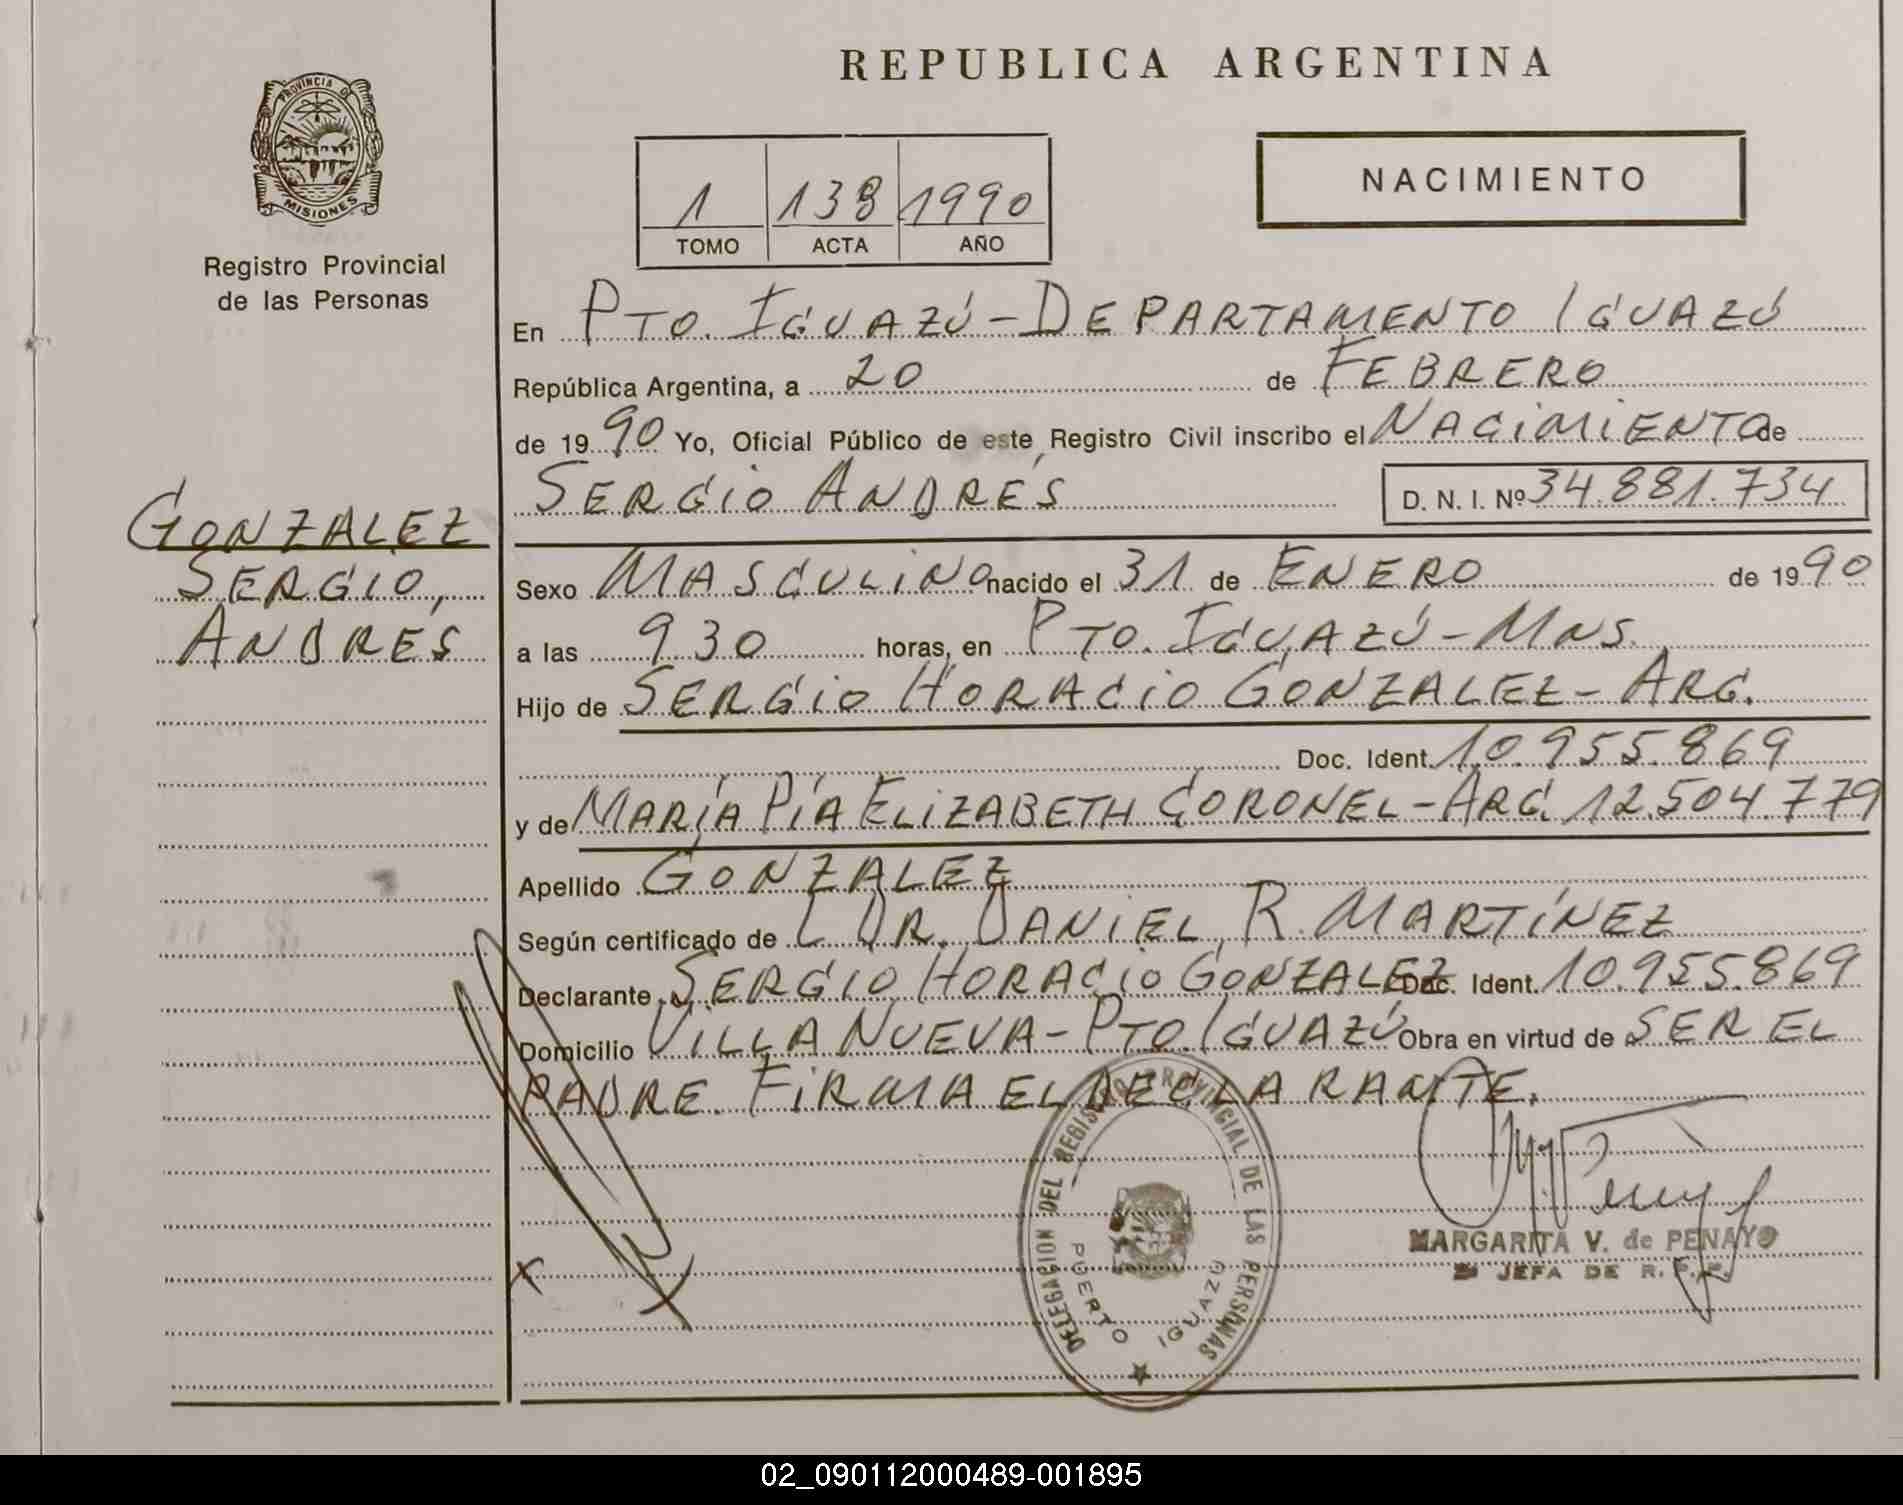 REPUBLICA ARGENTINA
PROVINCIA D
MISIONES
Registro Provincial
de las Personas
1 138 1990
TOMO ACTA AÑO
NACIMIENTO
En PTO. IGUAZÚ - DEPARTAMENTO IGUAZÚ
República Argentina, a 20 de FEBRERO
de 19 90 Yo, Oficial Público de este Registro Civil inscribo el NACIMIENTO de
SERGIO ANDRÉS D. N. I. Nº 34.881.734
GONZALEZ
SERGIO,
ANDRÉS
Sexo MASCULINO nacido el 31 de ENERO de 19 90
a las 9 30 horas, en PTO. IGUAZÚ - MNS.
Hijo de SERGIO HORACIO GONZALEZ - ARG.
Doc. Ident. 10.955.869
y de MARÍA PÍA ELIZABETH CORONEL - ARG. 12.504.779
Apellido GONZALEZ
Según certificado de DR. DANIEL R. MARTÍNEZ
Declarante SERGIO HORACIO GONZALEZ Doc. Ident. 10.955.869
Domicilio VILLA NUEVA - PTO. IGUAZÚ Obra en virtud de SER EL
PADRE. FIRMA EL DECLARANTE.
DELEGACION DEL REGISTRO PROVINCIAL DE LAS PERSONAS
PUERTO IGUAZU
MARGARITA V. de PENAYO
JEFA DE R. P. P.
02_090112000489-001895